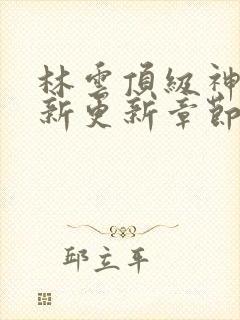 林雲頂級神
新更新章節
邱立平